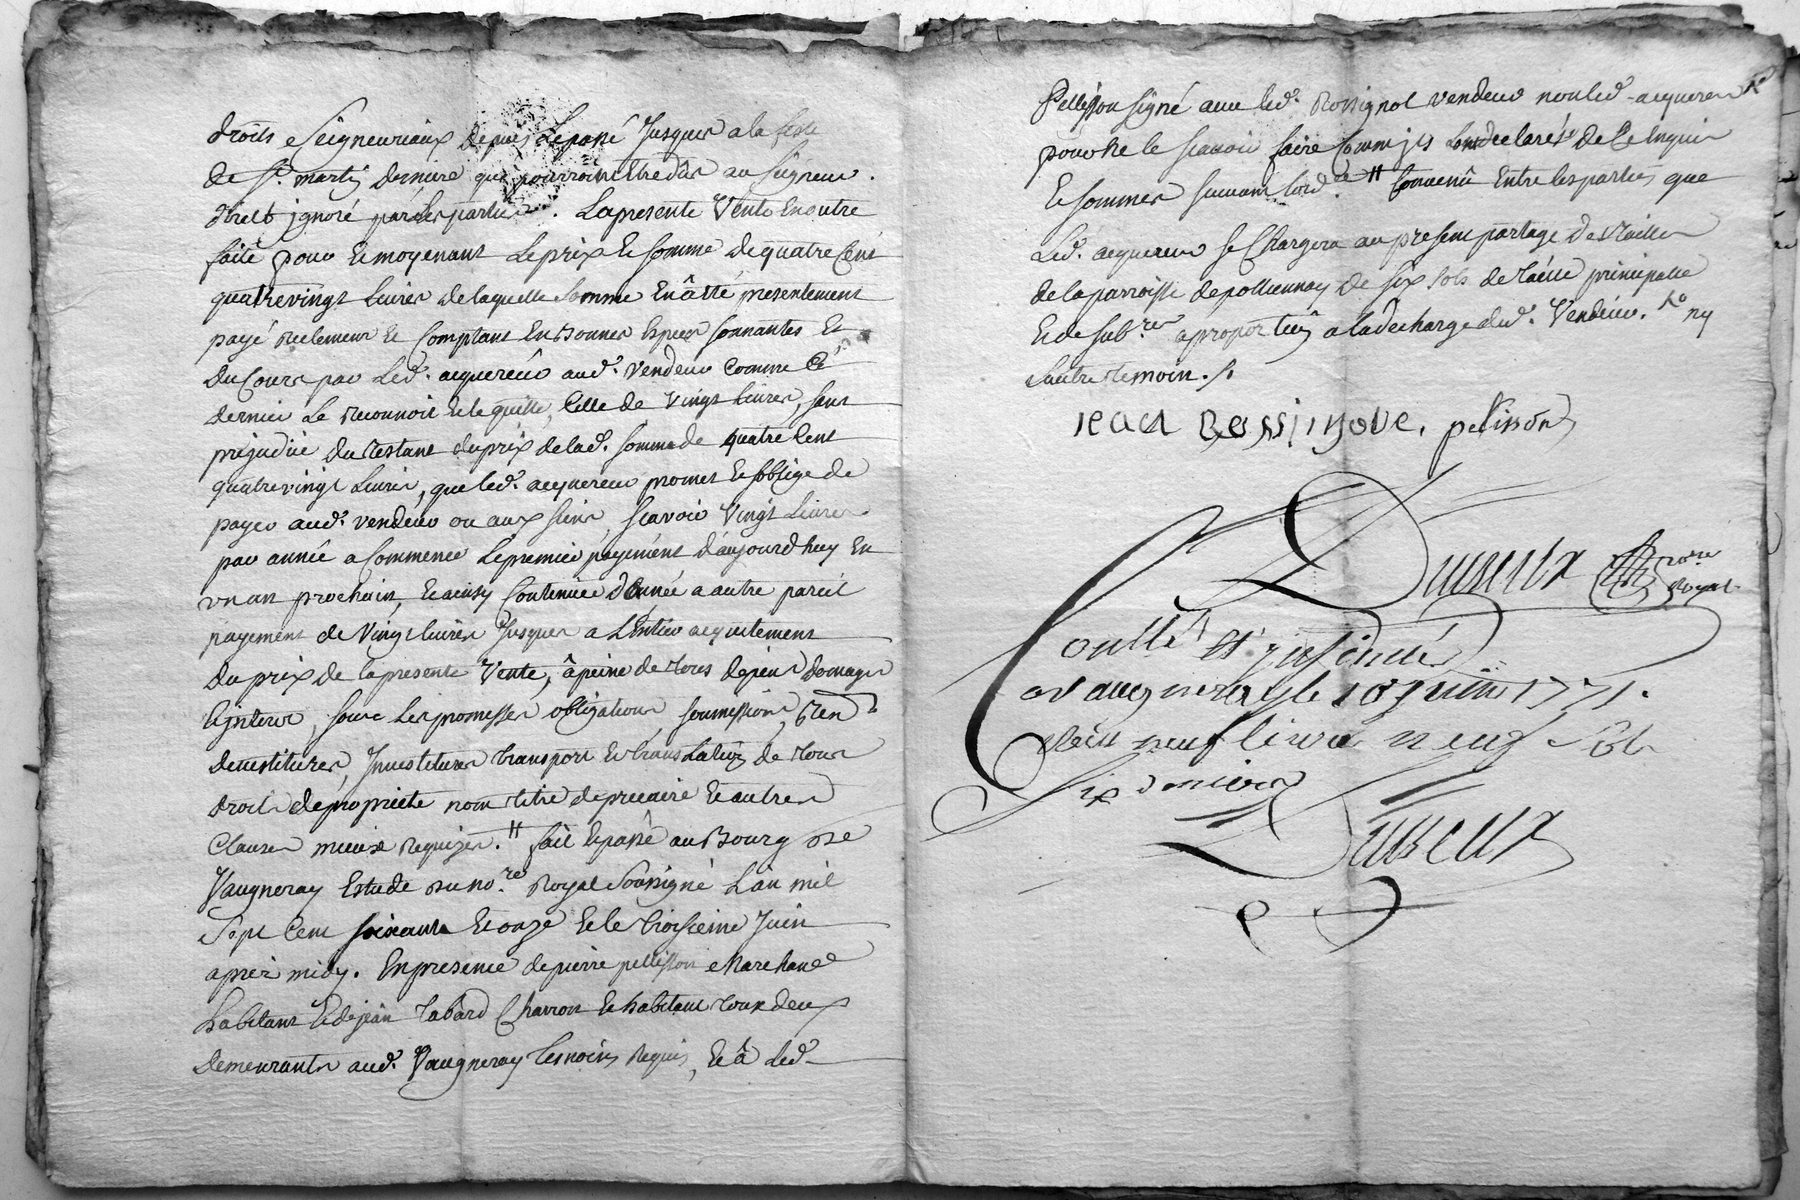 droits Seigneuriaux depuis Le passé Jusques a la feste
de St. martin derniere qui pourroint Etre dûs au Seigneur
direct ignoré par Les parties. La presente Vente En outre
faite pour Et moyenant Le prix Et somme de quatre Cent
quatrevingt Livres de laquelle somme En â été presentement
payé réelement Et Comptant En bonnes Espèces sonnantes Et
du Cours par Led. acquereur aud. vendeur Comme Ce
dernier Le reconnoit Et le quitte, Celle de Vingt Livres, sans
prejudice du restant du prix de lad. somme de quatre Cent
quatrevingt Livres, que led. acquereur promet Et soblige de
payer aud. vendeur ou aux siens, scavoir Vingt Livres
par année a Commencer Le premier payement d'aujourd huy En
un an prochain, Et ainsy Continuer d'année a autre pareil
payement de Vingt livres Jusques a L'Entier acquitement
du prix de la presente Vente, â peine de tous depens Domages
Et jnterets, sous Les promesses obligations soumissions, Ren.on
devestitures, Jnvestitures transport Et translation de tous
droits de proprieté nom titre de precaire Et autres
Clauses mieux requises. // fait Et passé au Bourg de
Vaugneray Estude du no.re Royal Soussigné L'an mil
Sept Cent soixante Et onze Et le troisieme Juin
aprez midy. En presence de pierre pellisson Marchand
habitant Et de jean Tabard Charron Et habitant tous deux
demeurants aud. Vaugneray temoins requis, Et â Led.
Pellisson signé avec Led. Rossignol vendeur non led. acquereur
pour ne le scavoir faire Comm' ils L'ont declarés de Ce Enquis
Et sommer suivant L'ord.ce // Convenû Entre les parties que
Led. acquereur se Chargera au present partage des tailles
de la parroisse de pollionnay de six sols de taille principalle
Et de sub.res a proportion a la decharge dud. Vendeur. ny
L'autre temoin.
jean Rossignole. pelisson
Dusseux no.re Royal
Controllé et jnsinué
a vaugneray le 18 juin 1771.
Recu neuf livres neuf sols
six deniers
Dusseux